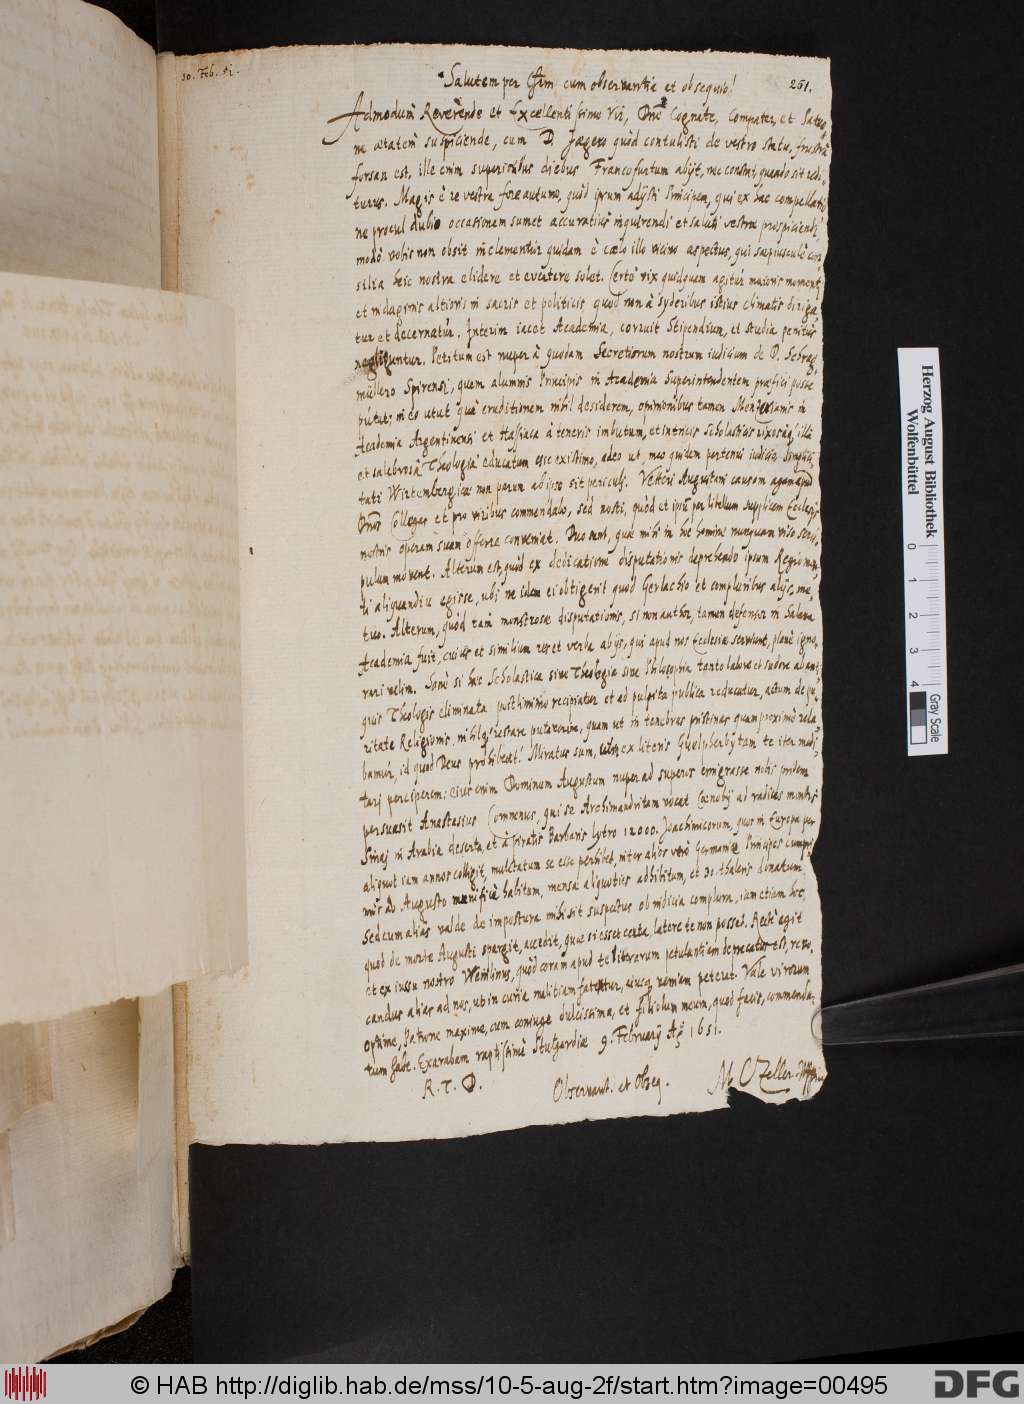 20. Feb. 51.
Salutem per Chrm cum observantia et obsequio!
261.
Admodum Reverende et Excellentissime Vir, Dne Cognate, Compater, et Fautor
in ætatem suspiciende, cum D. Jægero quòd contulisti de vestro statu, frustrà
forsan est, ille enim superioribus diebus Francofurtum abijt, nec constat, quando sit redi-
turus. Magis è re vestra fore autumo, quòd ipsum adijsti Principem, qui ex hac compellatio-
ne procul dubio occasionem sumet accuratius inquirendi et saluti vestræ prospiciendi,
modò vobis non obsit inclementior quidam è cælo illo vicino aspectus, qui sæpiusculè con-
silia heic nostra elidere et evertere solet. Certò vix quidquam agitur maioris momenti
et indaginis altioris in sacris et politicis, quod non à syderibus istius climatis diriga-
tur et decernatur. Interim iacet Academia, corruit Stipendium, et studia penitus
negliguntur. Petitum est nuper à quodam Secretiorum nostrum iudicium de D. Schrag-
müllero Spirensi, quem alumnis Principis in Academia Superintendentem præfici posse
putat; in eo utut quà eruditionem nihil desiderem, opinionibus tamen Menzerianis in
Academia Argentinensi et Hassiaca à teneris imbutum, et in tricis Scholasticis rixosâq, illâ
et salebrosâ Theologiâ educatum esse existimo, adeo ut, meo quidem pertenui iudicio, simplici-
tati Wirtembergicæ non parum ab ipso sit periculi. Vetteri Augustani causam agam apud
Dnos Collegas et pro viribus commendabo, sed nosti, quòd et ipsum per libellum supplicem Ecclesijs
nostris operam suam offerre conveniat. Duo sunt, quæ mihi in hoc homine nunquam viso scru-
pulum movent. Alterum est, quòd ex dedicatione disputationis deprehendo ipsum Regiomon-
ti aliquandiu egisse, ubi ne idem ei obtigerit quod Gerlachio et compluribus alijs, me-
tuo. Alterum, quòd tam monstrosæ disputationis, si non author, tamen defensor in Salana
Academia fuit, cuius et similium res et verba abijs, qui apud nos Ecclesiæ serviunt, planè igno-
rari velim. Sanè si hæc Scholastica sive Theologia sive Philosophia tanto labore et sudore ab anti-
quis Theologis eliminata postliminio recipiatur et ad pulpita publica reducatur, actum de pu-
ritate Religionis, nihilq, restare putaverim, quam ut in tenebras pristinas quam proximè rela-
bamur, id quod Deus prohibeat! Miratus sum, cùm ex literis Guelpherbytam te iter medi-
tari perciperem: eius enim Dominum Augustum nuper ad superos emigrasse nobis pridem
persuasit Anastasius Comnenus, qui se Archimandritam vocat Cœnobij ad radices montis
Sinaj in Arabia deserta, et à piratis Barbaris lytro 12000. Joachimicorum, quos in Europa per
aliquot iam annos colligit, mulctatum se esse perhibet, inter alios verò Germaniæ Principes cumpri-
mis ab Augusto munificè habitum, mensæ aliquoties adhibitum, et 30. thaleris donatum.
Sed cum aliàs valde de impostura mihi sit suspectus ob indicia complura, iam etiam hoc,
quod de morte Augusti spargit, accedit, quæ si esset certa, latere te non posset. Rectè egit
et ex iussu nostro Wendlinus, quòd coram apud te literarum petulantiam deprecatus est, revo-
candus aliàs ad nos, ut in curia malitiam fateatur, eiusq, veniam peterat. Vale virorum
optime, Patrone maxime, cum coniuge dulcissima, et filiolum meum, quod facis, commenda-
tum habe. Exarabam raptissimè Stutgardiæ 9. Februarij Ao 1651.
R. T. D.
Observant. et Obseq.
M C Zeller
Herzog August Bibliothek
Wolfenbüttel
0 1 2 3 4
Gray Scale
© HAB http://diglib.hab.de/mss/10-5-aug-2f/start.htm?image=00495
DFG